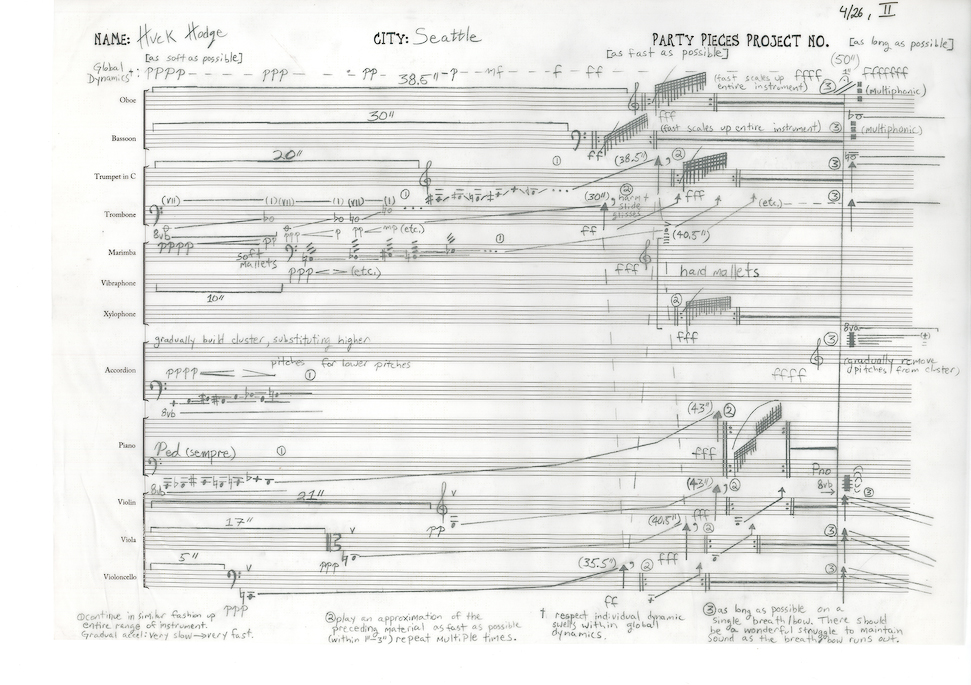 4/26, II
NAME: Huck Hodge CITY: Seattle PARTY PIECES PROJECT NO.
[as soft as possible] [as fast as possible] [as long as possible]
Global Dynamics†: pppp ppp pp p mf f ff ffff fffffff
38.5" (50")
Oboe (fast scales up entire instrument) ③ (multiphonic)
fff
30"
Bassoon (fast scales up entire instrument) ③ (multiphonic)
ff
20" ① (38.5") ② ③
Trumpet in C
fff
(VII) (I) (VII) (I) (VII) (I) ① (30") ② harm + slide glisses (etc.) ③
Trombone
8vb ppp p pp mp (etc.) ff
pppp pp (40.5")
Marimba soft mallets ①
ppp (etc.) fff hard mallets
Vibraphone
10"
Xylophone ②
fff
gradually build cluster, substituting higher
pitches for lower pitches
8va
③
Accordion pppp ①
(gradually remove pitches from cluster)
ffff
8vb
(43") ②
Piano
Ped (sempre) ①
fff
8vb
Pno
8vb
21" (43") ② ③
Violin
pp fff
17" (40.5") ② ③
Viola
ppp fff
5" (35.5") ② ③
Violoncello
ppp ff
①continue in similar fashion up
entire range of instrument.
Gradual accel: very slow→very fast.
②play an approximation of the
preceding material as fast as possible
(within 1"-3") repeat multiple times.
† respect individual dynamic
swells within global
dynamics.
③as long as possible on a
single breath/bow. There should
be a wonderful struggle to maintain
sound as the breath/bow runs out.